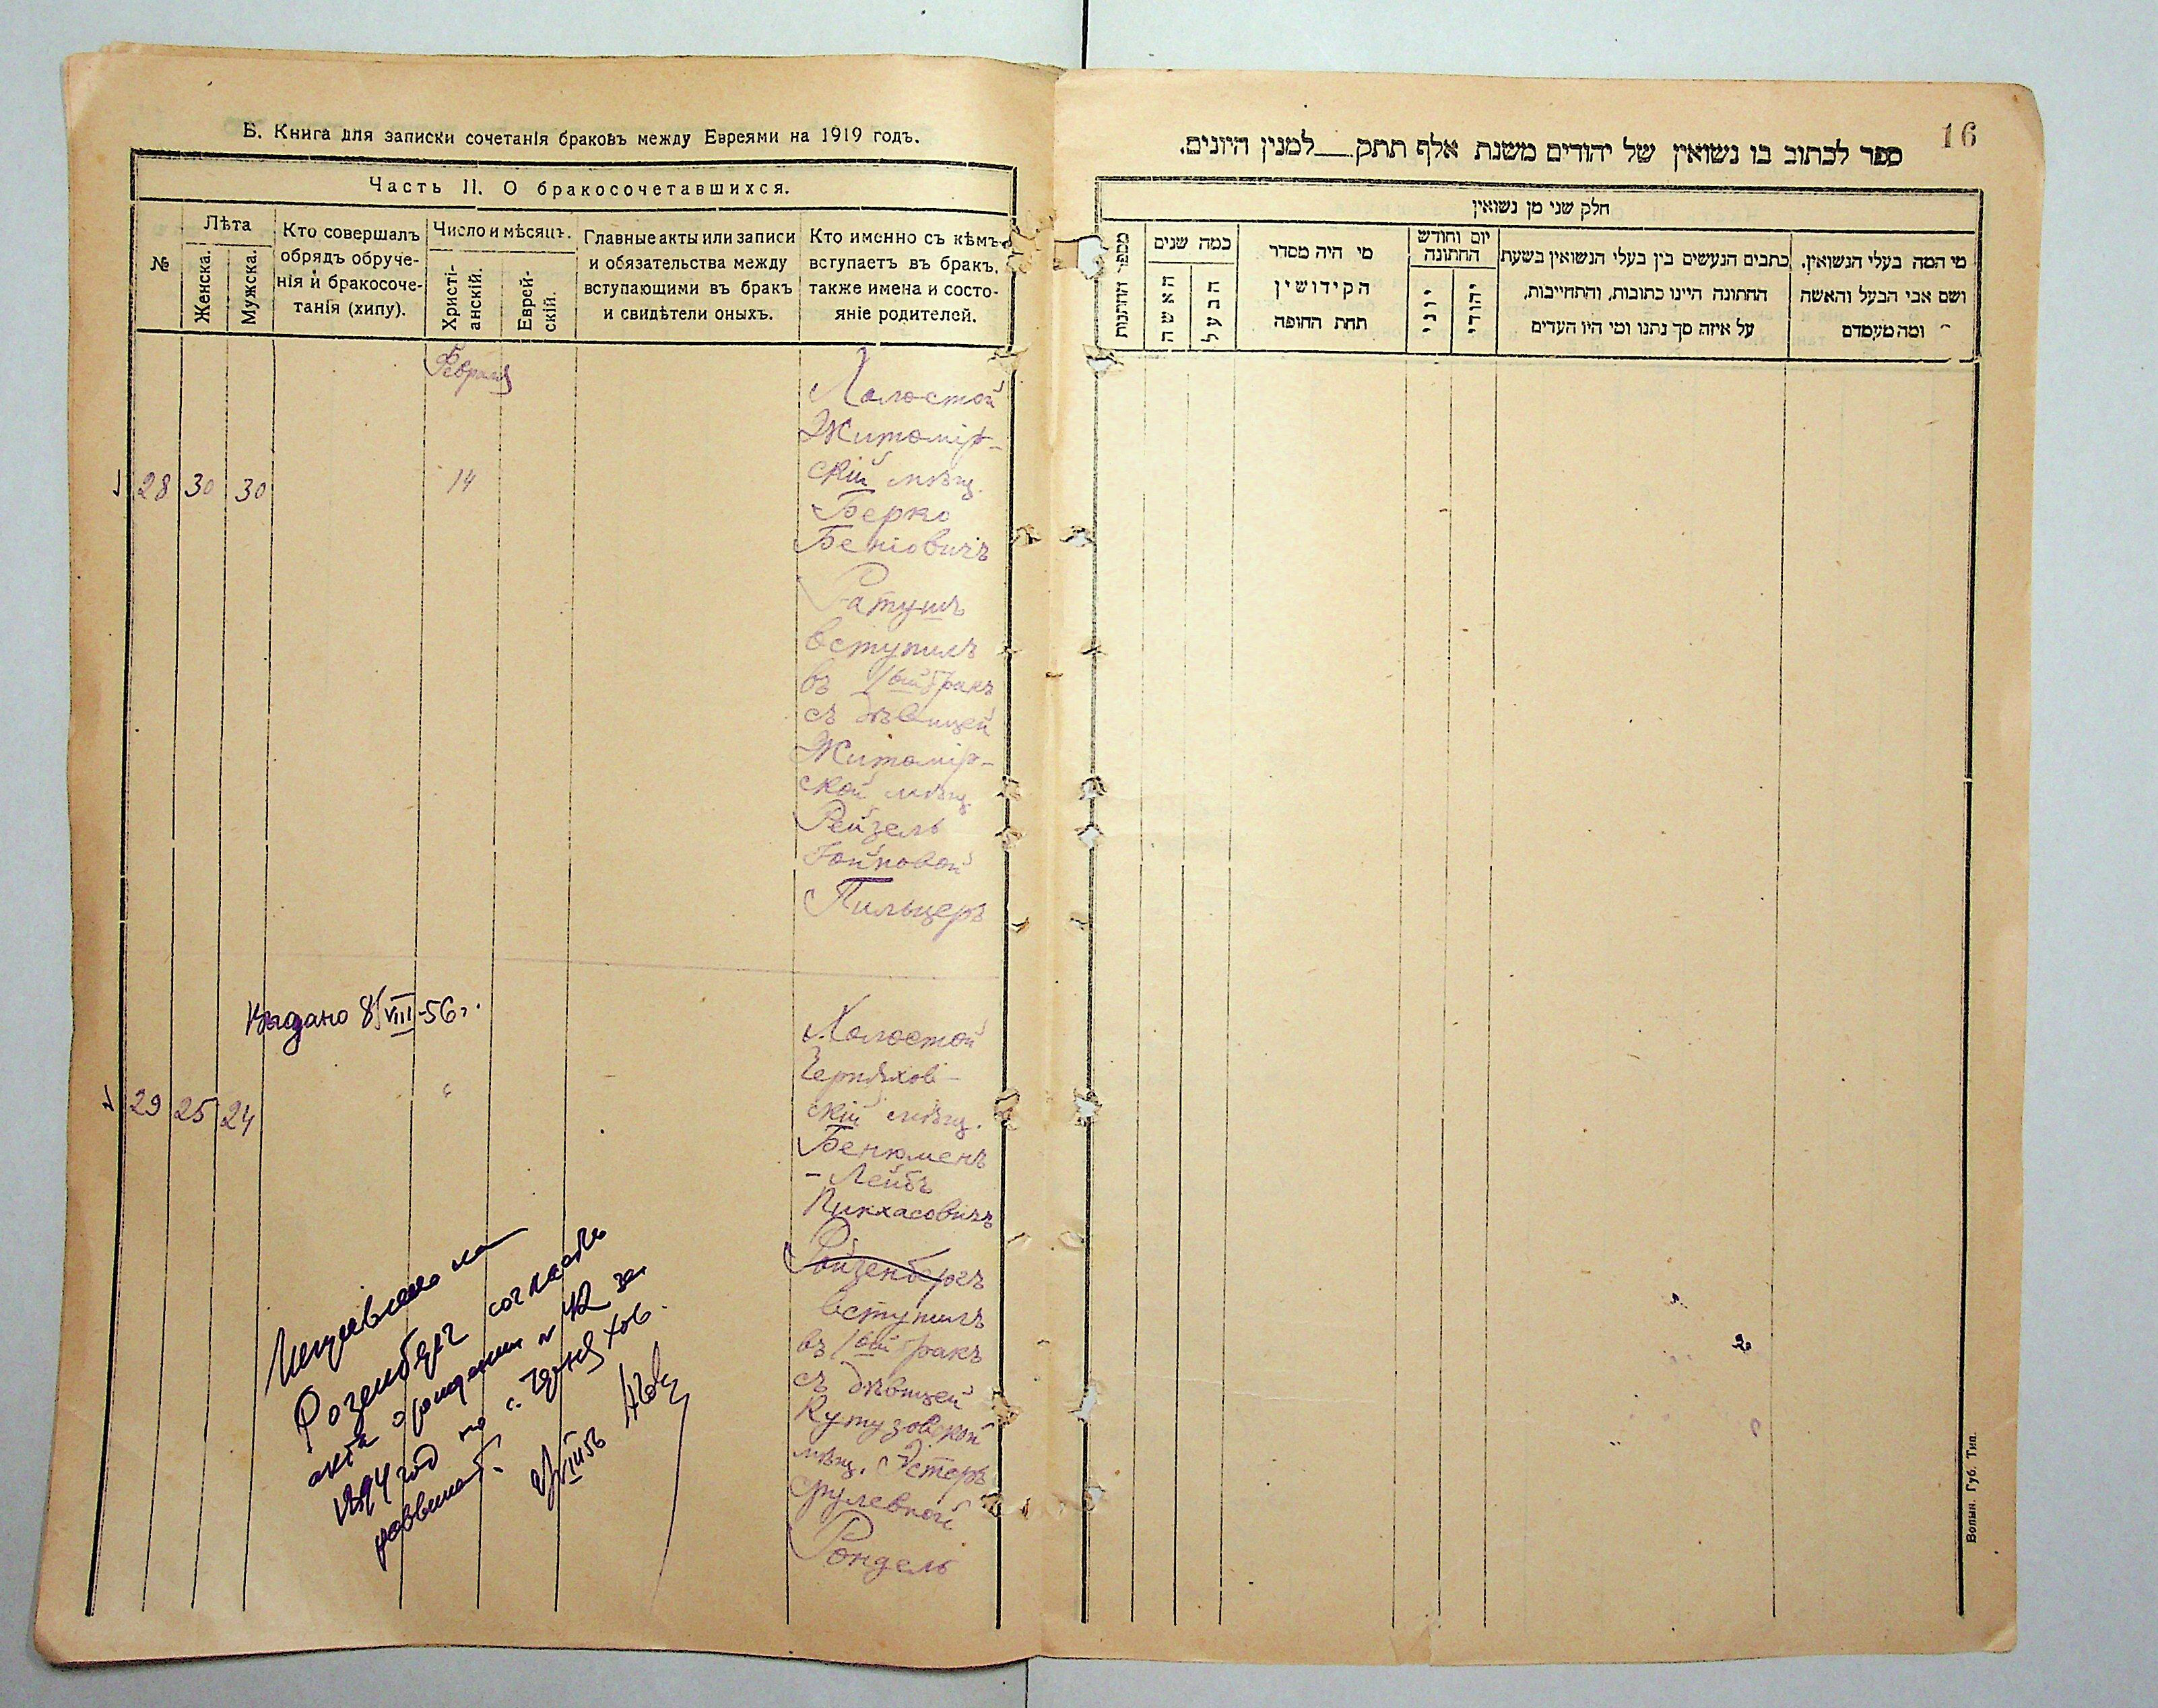 Б. Книга для записки сочетанія браковъ между Евреями на 1919 годъ.
Часть II. О бракосочетавшихся.
№
Лѣта
Женска.
Мужска.
Кто совершалъ
обрядъ обруче-
нія и бракосоче-
танія (хипу).
Число и мѣсяцъ.
Христі-
анскій.
Еврей-
скій.
Главные акты или записи
и обязательства между
вступающими въ бракъ
и свидѣтели оныхъ.
Кто именно съ кѣмъ
вступаетъ въ бракъ,
также имена и состо-
яніе родителей.
Февраля
28 30 30
14
Холостой
Житомір-
скій мѣщ.
Берко
Беніовичъ
Ратушъ
вступилъ
въ 1ый бракъ
съ дѣвицей
Житомір-
ской мѣщ.
Рейзель
Пильцеръ
Выдано 8/VIII-56г.
29 25 24
"
Холостой
Черняхов-
скій мѣщ.
Бенюменъ
-Лейбъ
Пинхасовичъ
Ройзенбергъ
вступилъ
въ 1ый бракъ
съ дѣвицей
Кутузовской
мѣщ. Эстеръ
Срулевной
Рондель
Розенберг согласно
акта о рождении № 42 за
1894 год по с. Чернях ов.
16
ספר לכתוב בו נשואין של יהודים משנת אלף תתק___למנין היונים.
חלק שני מן נשואין
מספר החתונות
כמה שנים
האשה
הבעל
מי היה מסדר
הקידושין
תחת החופה
יום וחודש
החתונה
יוני
יהודי
כתבים הנעשים בין בעלי הנשואין בשעת
החתונה היינו כתובות, והתחייבות,
על איזה סך נתנו ומי היו העדים
מי המה בעלי הנשואין.
ושם אבי הבעל והאשה
ומה מעמדם
Волын. Губ. Тип.